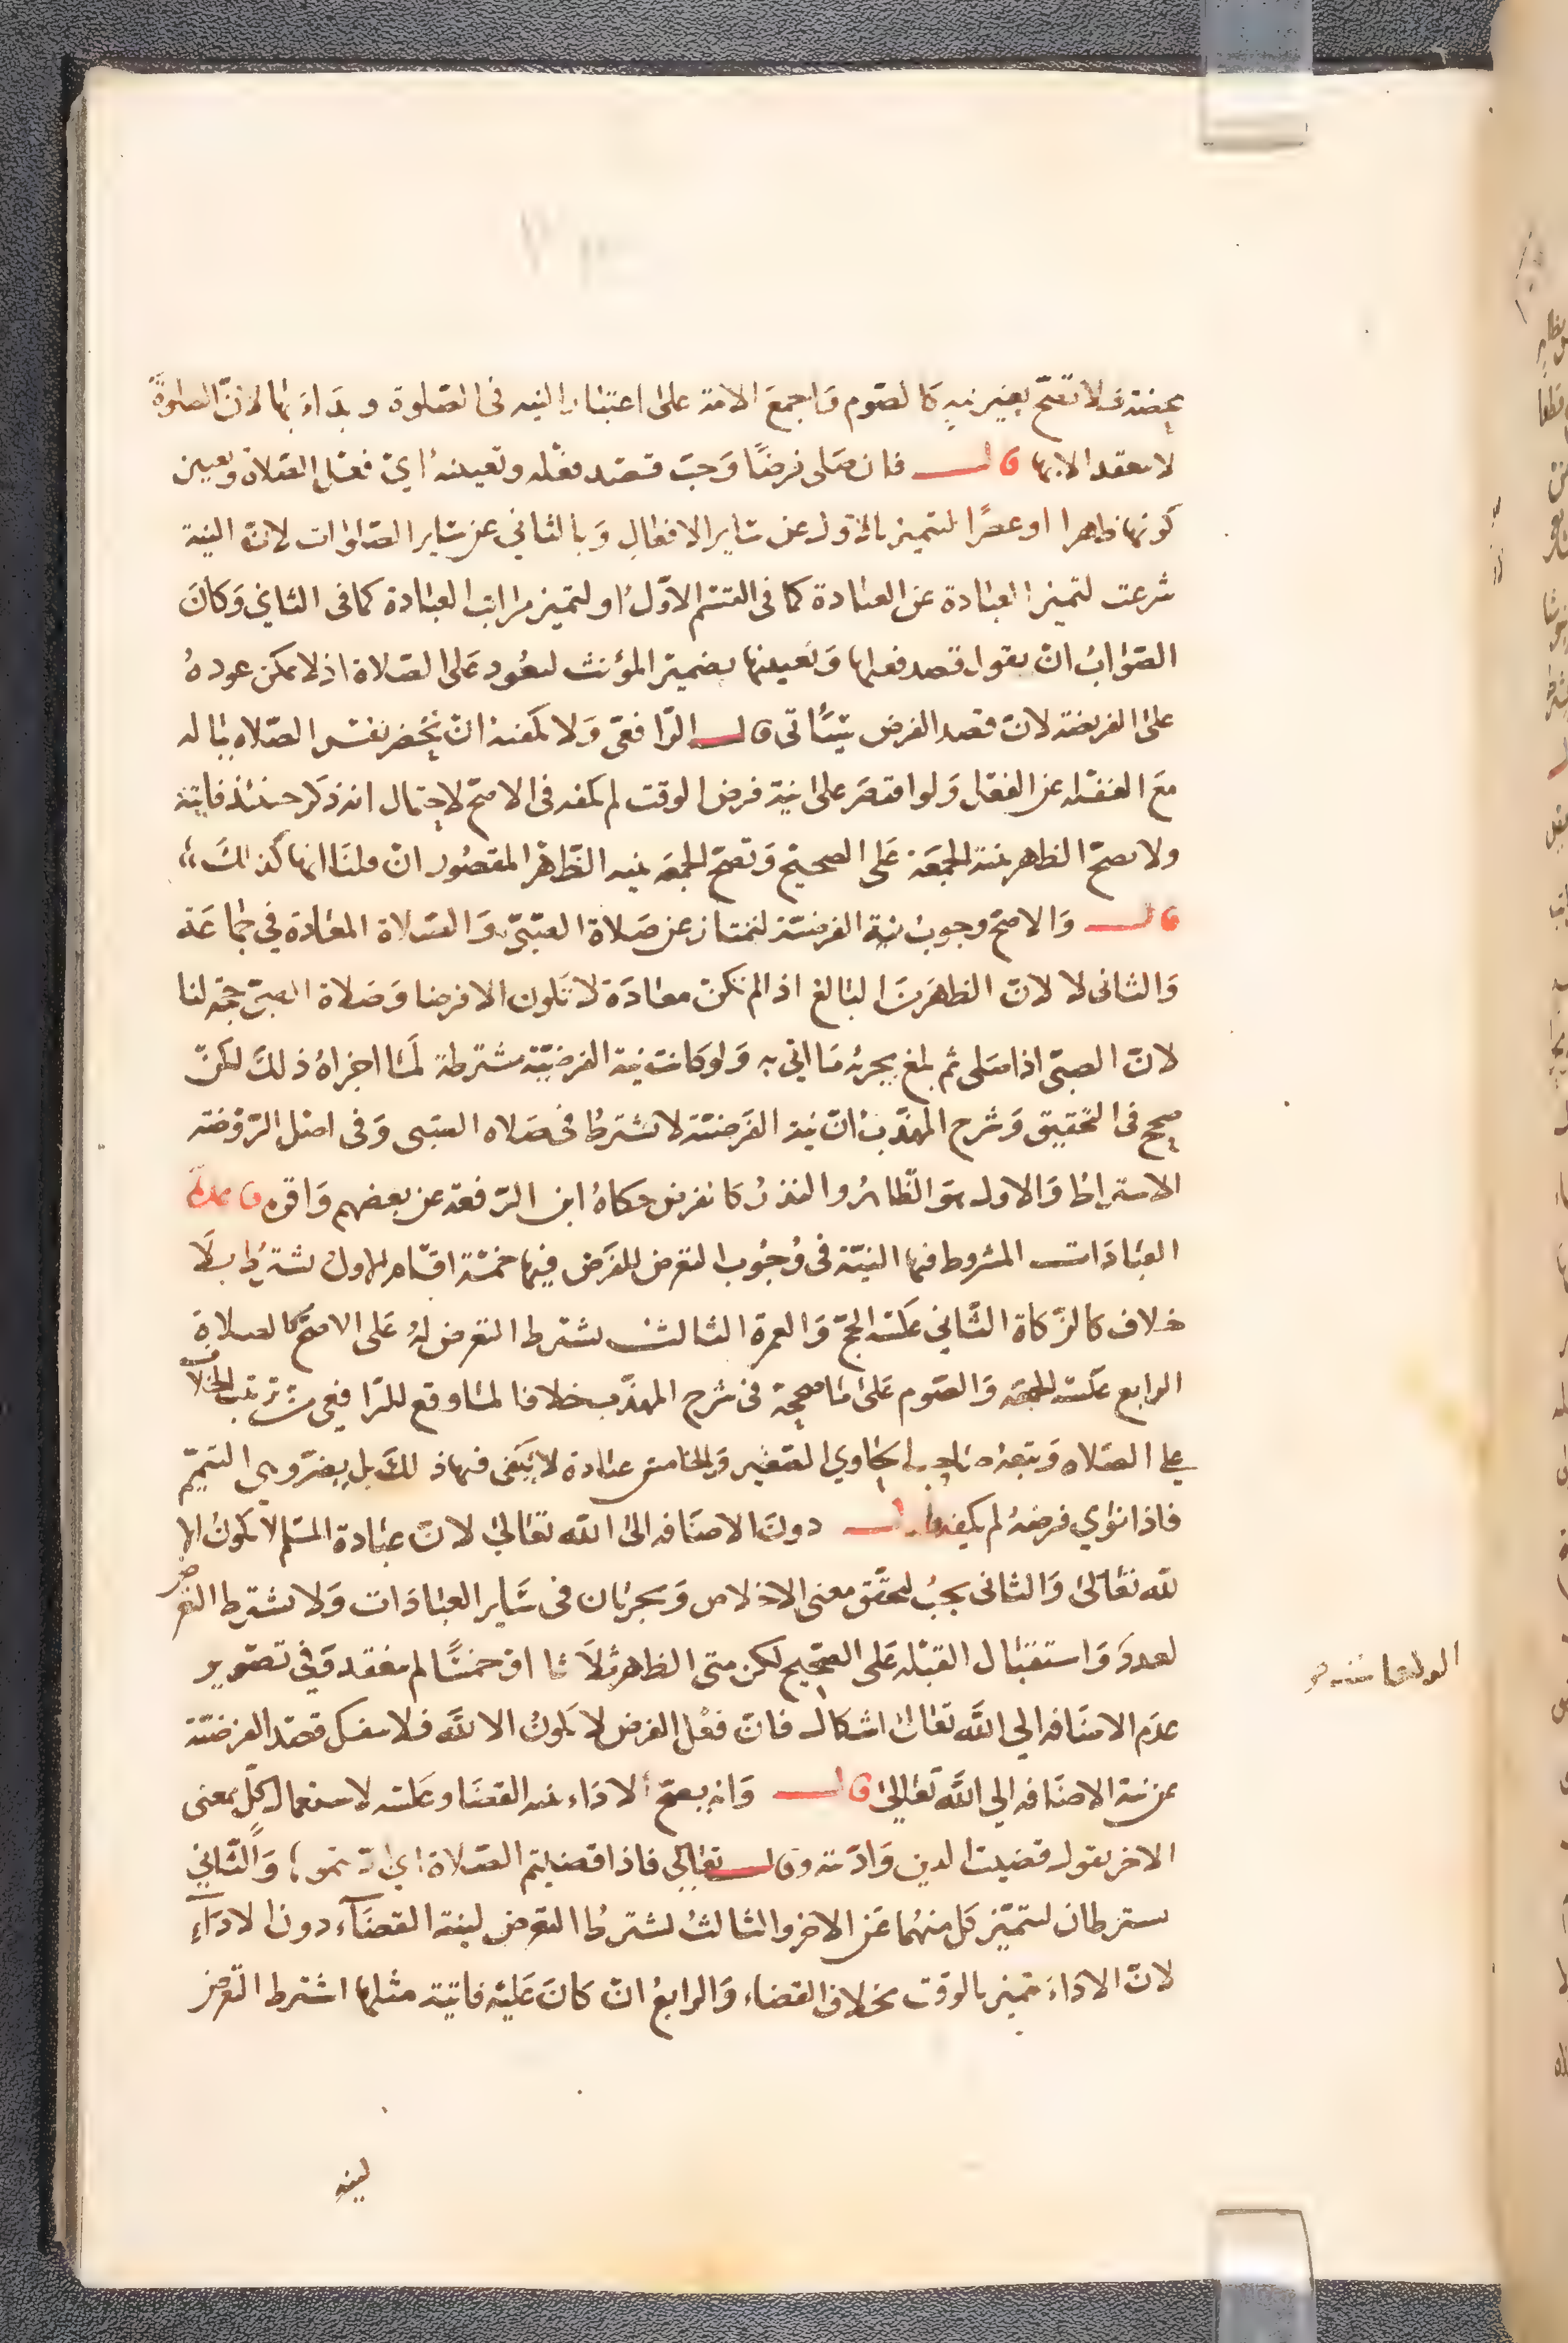 محضة فلا تصح بغير نيه كالصوم واجمع الامة على اعتبار النيه فى الصلوة وبداء بها لان الصلوة
لا تنعقد الا بها قال فان صلى فرضا وجب قصد فعله وتعيينه اي فعل الصلاة وتعيين
كونها ظهرا او عصرا لتتميز بالاول عن ساير الافعال وبالثاني عن ساير الصلوات لان النية
شرعت لتمييز العبادة عن العبادة كما فى القسم الاول او لتمييز مراتب العبادة كما فى الثاني وكان
الصواب ان يقول قصد فعلها وتعيينها بضمير المؤنث ليعود على الصلاة اذ لا يمكن عوده
على الفريضة لان قصد الفرض سيأتى قال الرافعى ولا يكفيه ان يحضر نفس الصلاه بباله
مع الغفله عن الفعل ولو اقتصر على نية فرض الوقت لم يكفه فى الاصح لاحتمال انه ذكر حينئذ فايتة
ولا يصح الظهر بنية الجمعة على الصحيح وتصح الجمعة بنيه الظهر المقصور ان قلنا انها كذلك
قال والاصح وجوب نية الفرضية لتمتاز عن صلاة الصبى والصلاة المعادة في جماعة
والثانى لا لان الظهر من البالغ اذا لم تكن معادة لا تكون الا فرضا وصلاة الصبى حجة لنا
لان الصبى اذا صلى ثم بلغ يجزيه ما اتى به ولو كانت نية الفرضية مشترطة لما اجزاه ذلك لكن
صحح فى التحقيق وشرح المهذب ان نية الفرضية لا تشترط فى صلاه الصبى وفى اصل الروضة
الاشتراط والاول هو الظاهر والنذر كالفرض حكاه ابن الرفعة عن بعضهم واقره قاعدة
العبادات المشروط فيها النية فى وجوب التعرض للفرض فيها خمسة اقسام الاول يشترط بلا
خلاف كالزكاة الثاني عكسه الحج والعمرة الثالث يشترط التعرض له على الاصح كالصلاة
الرابع عكسه الجمعة والصوم على ما صححه فى شرح المهذب خلافا لما وقع للرافعى من ترتيب الخلاف
على الصلاه وتبعه صاحب الحاوي الصغير والخامس عبادة لا يكفى فيها ذلك بل يضر وهى التيمم
فاذا نوى فرضه لم يكفه قال دون الاضافه الى الله تعالى لان عبادة المسلم لا تكون الا
لله تعالى والثانى يجب لتحقق معنى الاخلاص ويجريان فى ساير العبادات ولا يشترط التعرض
لعدد واستقبال القبله على الصحيح لكن متى الظهر ثلاثا او خمسا لم ينعقد وفي تصوير
عدم الاضافه الي الله تعالى اشكال فان فعل الفرض لا يكون الا لله فلا ينفك قصد الفرضية
عن نية الاضافه الى الله تعالى قال وانه يصح الاداء بنيه القضا وعكسه لاستعمال كل بمعنى
الاخر يقول قضيت الدين واديته وقال تعالى فاذا قضيتم الصلاة اي اديتموها والثاني
يشترطان ليتميز كل منهما عن الاخر والثالث يشترط التعرض لنية القضاء دون الاداء
لان الاداء يتميز بالوقت بخلاف القضاء والرابع ان كان عليه فايتة مثلها اشترط التعرض
لنيه